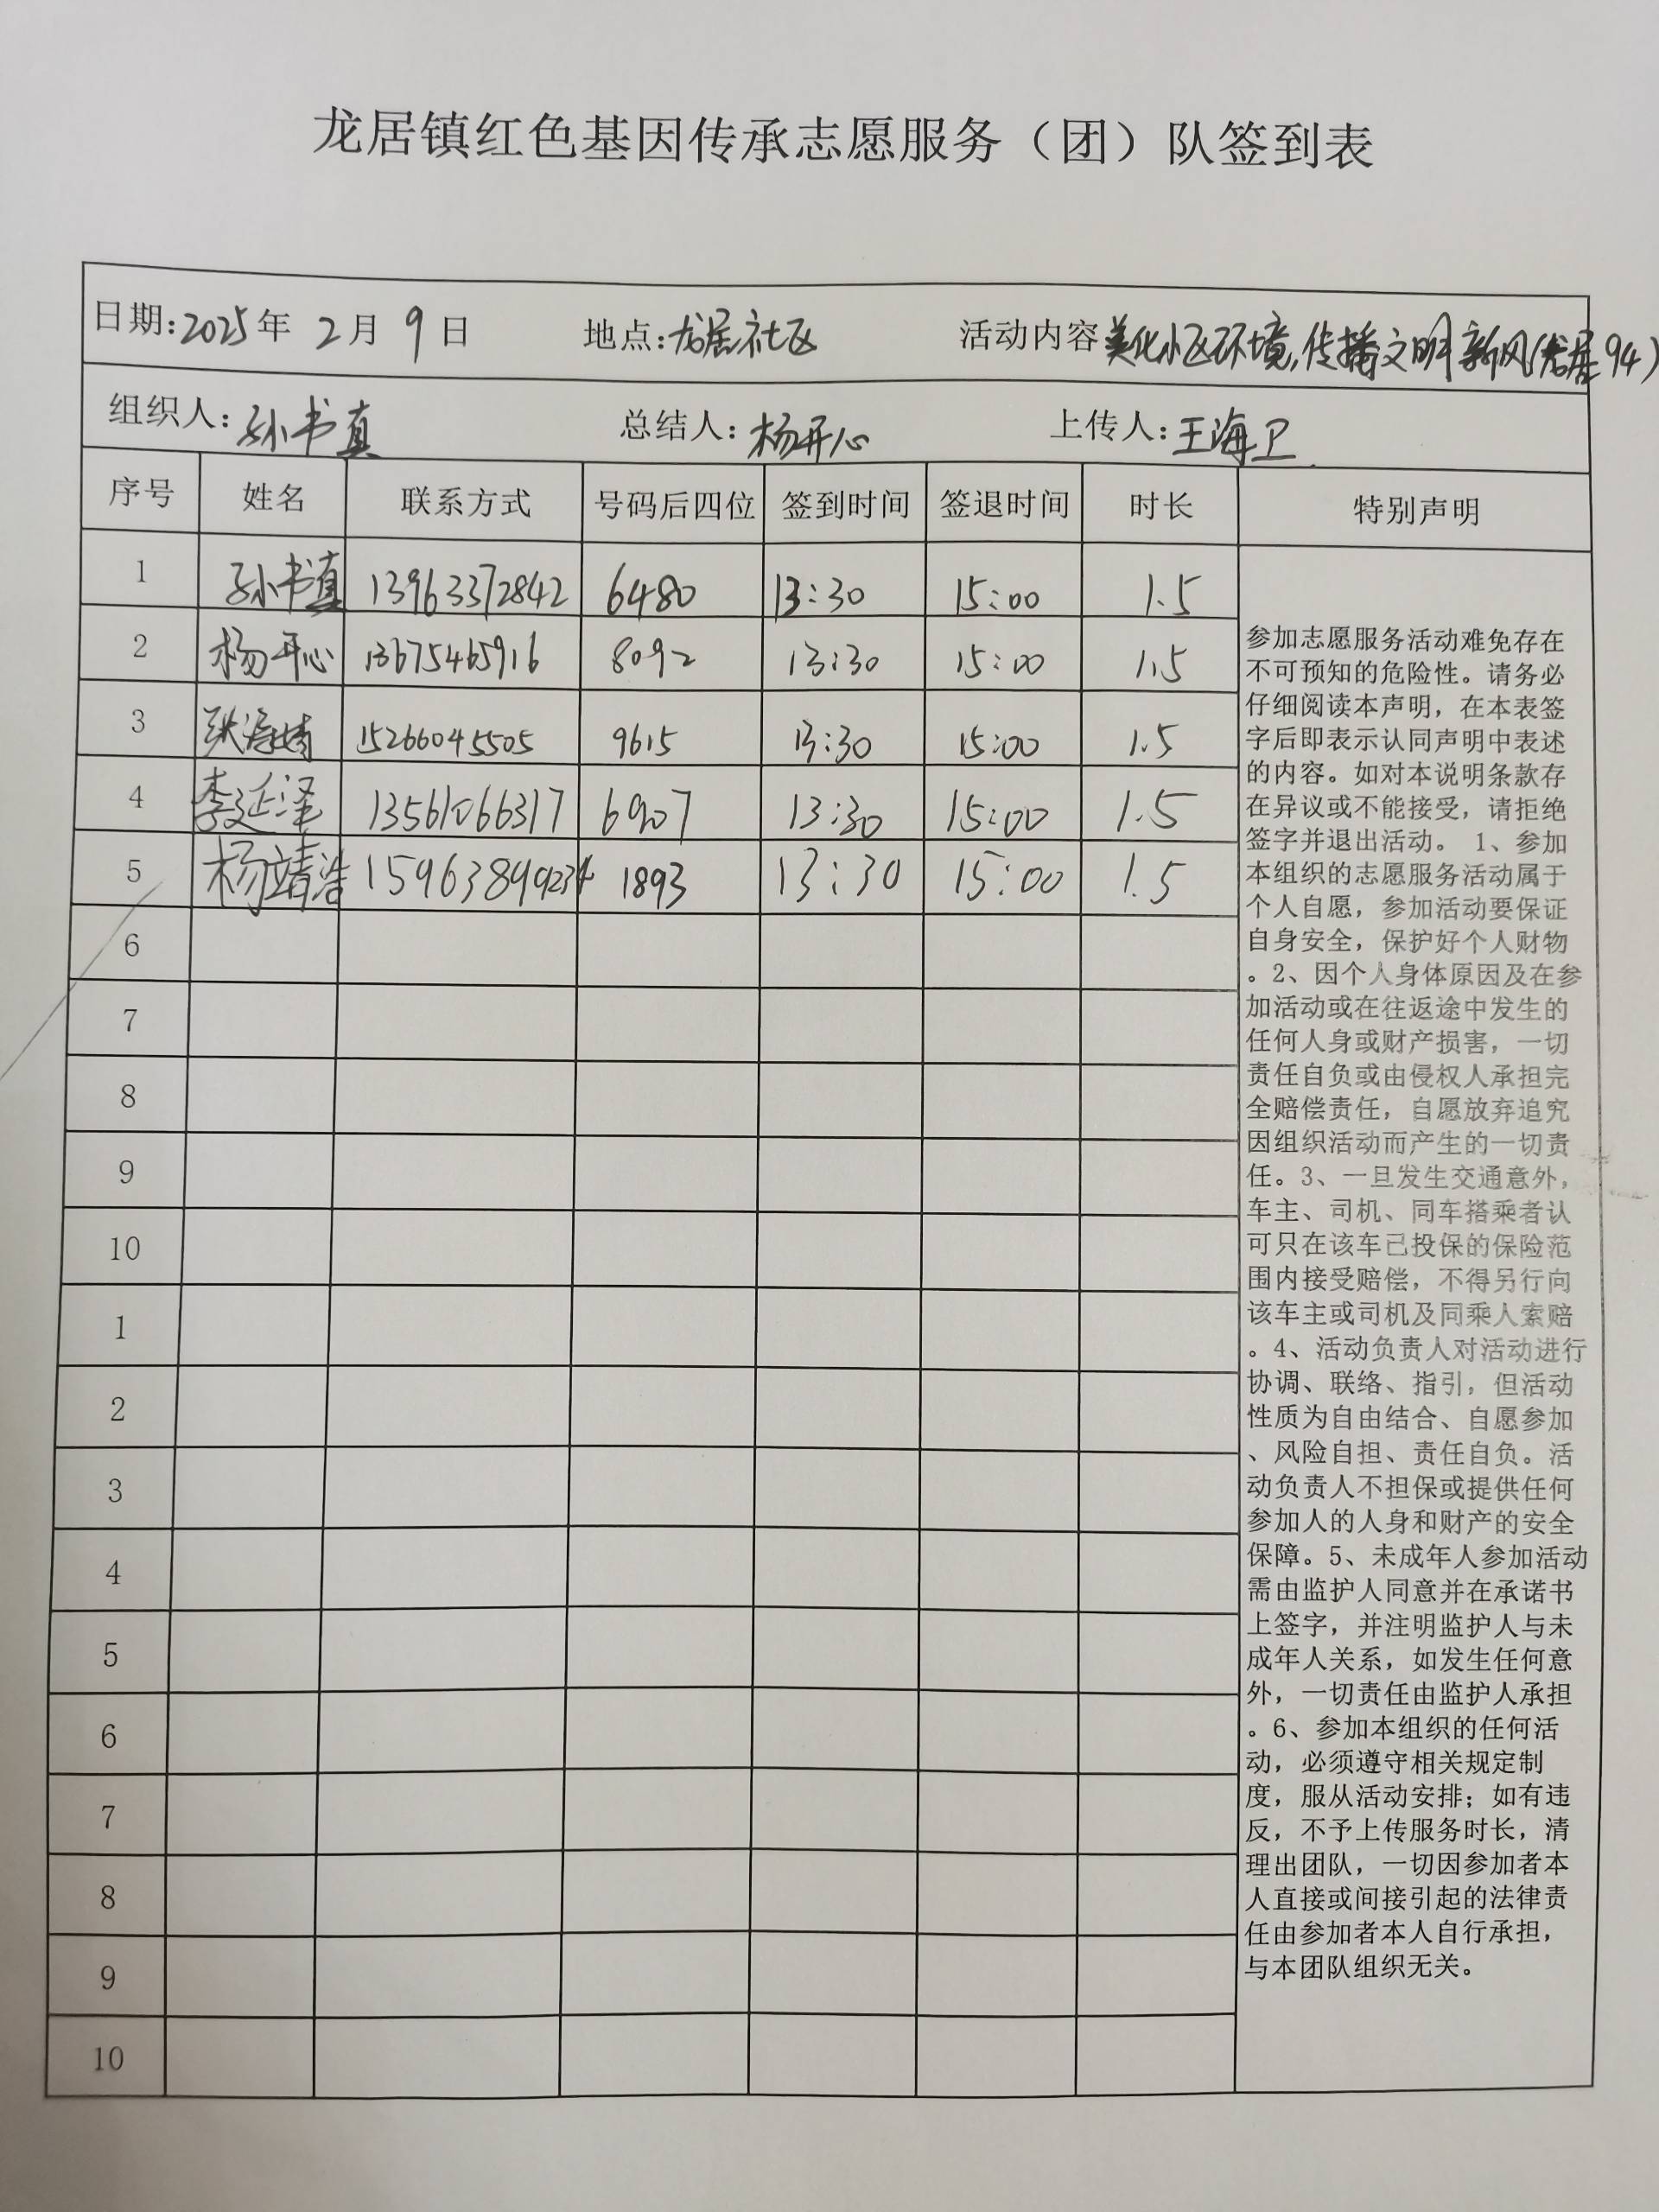 龙居镇红色基因传承志愿服务（团）队签到表
日期:2025年 2月 9日 地点:龙居社区 活动内容 美化小区环境,传播文明新风(龙居94)
组织人:孙书真 总结人:杨开心 上传人:王海卫
序号 姓名 联系方式 号码后四位 签到时间 签退时间 时长 特别声明
1 孙书真 13963372842 6480 13:30 15:00 1.5
2 杨开心 13675465916 8092 13:30 15:00 1.5
3 15266045505 9615 13:30 15:00 1.5
4 李延泽 13561066317 6907 13:30 15:00 1.5
5 杨靖浩 1893 13:30 15:00 1.5
6
7
8
9
10
1
2
3
4
5
6
7
8
9
10
参加志愿服务活动难免存在
不可预知的危险性。请务必
仔细阅读本声明，在本表签
字后即表示认同声明中表述
的内容。如对本说明条款存
在异议或不能接受，请拒绝
签字并退出活动。 1、参加
本组织的志愿服务活动属于
个人自愿，参加活动要保证
自身安全，保护好个人财物
。2、因个人身体原因及在参
加活动或在往返途中发生的
任何人身或财产损害，一切
责任自负或由侵权人承担完
全赔偿责任，自愿放弃追究
因组织活动而产生的一切责
任。3、一旦发生交通意外，
车主、司机、同车搭乘者认
可只在该车已投保的保险范
围内接受赔偿，不得另行向
该车主或司机及同乘人索赔
。4、活动负责人对活动进行
协调、联络、指引，但活动
性质为自由结合、自愿参加
、风险自担、责任自负。活
动负责人不担保或提供任何
参加人的人身和财产的安全
保障。5、未成年人参加活动
需由监护人同意并在承诺书
上签字，并注明监护人与未
成年人关系，如发生任何意
外，一切责任由监护人承担
。6、参加本组织的任何活
动，必须遵守相关规定制
度，服从活动安排；如有违
反，不予上传服务时长，清
理出团队，一切因参加者本
人直接或间接引起的法律责
任由参加者本人自行承担，
与本团队组织无关。